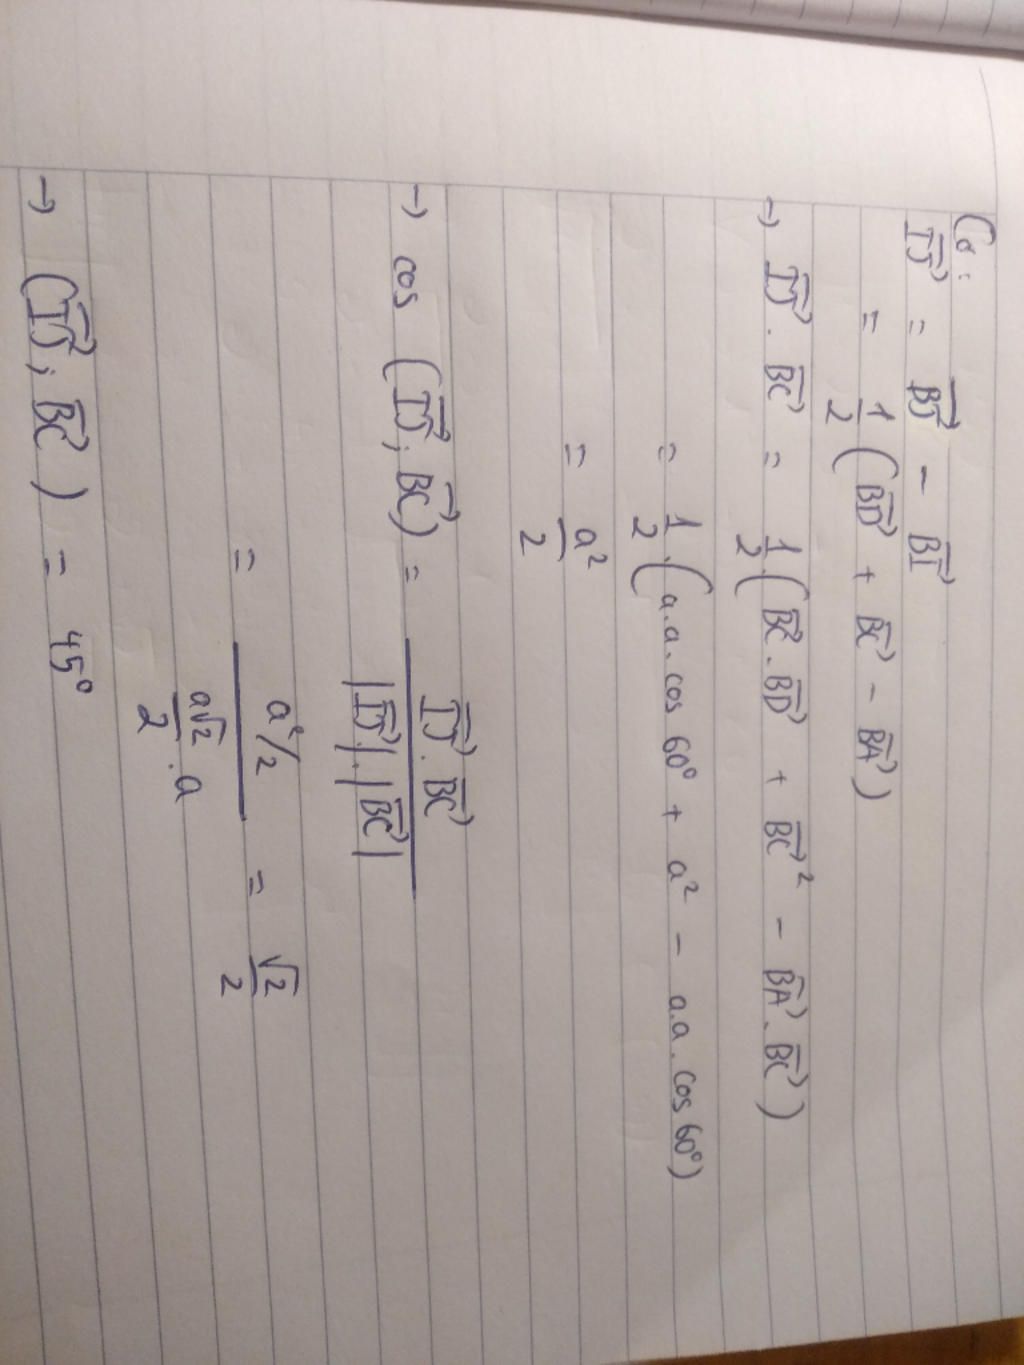 Có:
$\overrightarrow{IJ} = \overrightarrow{BJ} - \overrightarrow{BI}$
$= \frac{1}{2}(\overrightarrow{BD} + \overrightarrow{BC} - \overrightarrow{BA})$
$\rightarrow \overrightarrow{IJ} \cdot \overrightarrow{BC} = \frac{1}{2}(\overrightarrow{BC} \cdot \overrightarrow{BD} + \overrightarrow{BC}^2 - \overrightarrow{BA} \cdot \overrightarrow{BC})$
$= \frac{1}{2} \cdot (a.a.\cos 60° + a^2 - a.a.\cos 60°)$
$= \frac{a^2}{2}$
$\rightarrow \cos(\overrightarrow{IJ}; \overrightarrow{BC}) = \frac{\overrightarrow{IJ} \cdot \overrightarrow{BC}}{|\overrightarrow{IJ}| \cdot |\overrightarrow{BC}|}$
$= \frac{a^2/2}{\frac{a\sqrt{2}}{2} \cdot a} = \frac{\sqrt{2}}{2}$
$\rightarrow (\overrightarrow{IJ}; \overrightarrow{BC}) = 45°$